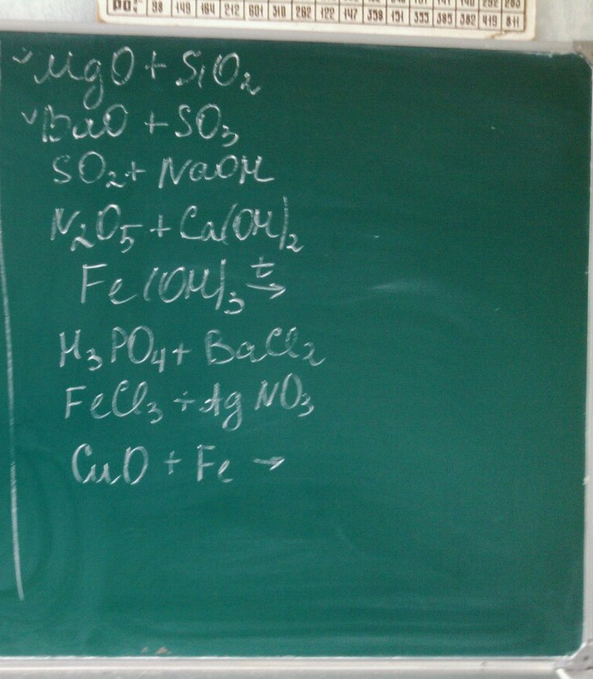 ро: 98 149 164 212 601 310 262 122 147 358 131 335 385 382 419 811
MgO + SiO₂
BaO + SO₃
SO₂ + NaOH
N₂O₅ + Ca(OH)₂
Fe(OH)₃ t→
H₃PO₄ + BaCl₂
FeCl₃ + AgNO₃
CuO + Fe →